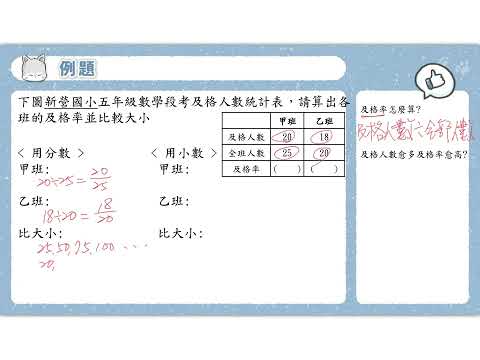 例題
下圖新營國小五年級數學段考及格人數統計表，請算出各
班的及格率並比較大小
甲班 乙班
及格人數 20 18
全班人數 25 20
及格率 ( ) ( )
< 用分數 >
甲班:
20÷25=20/25
乙班:
18÷20=18/20
比大小:
25,50,75,100……
20,
< 用小數 >
甲班:
乙班:
比大小:
及格率怎麼算?
及格人數÷全部人數
及格人數愈多及格率愈高?